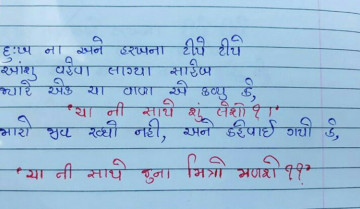 દુ:ખ ના અને હરખના ટીપે ટીપે
આંશુ વહેવા લાગ્યા સાહેબ
જ્યારે એક ચા વાળા એ કહ્યુ કે,
"ચા ની સાથે શું લેશો ? !"
મારો જીવ રહ્યો નહી, અને કહેવાઈ ગયો કે,
"ચા ની સાથે જુના મિત્રો મળશે ??"